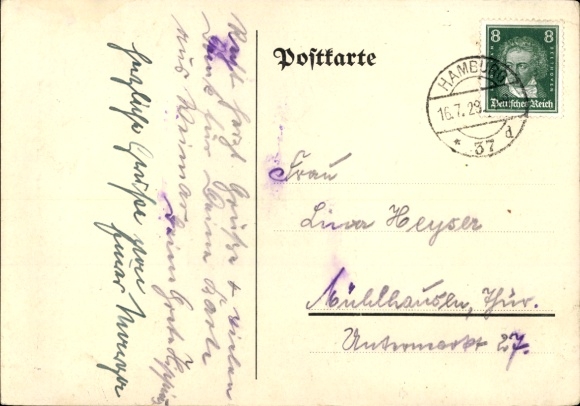 Postkarte
8 8
BEETHOVEN
Deutsches Reich
HAMBURG
16.7.29.
* 37 d
Recht herzl. Grüße + vielen
Dank für Deine Karte
aus Weimar.
Deine Grete
herzliche Grüße
Frau
Lina Heyser
Mühlhausen, Thür.
Untermarkt 27.